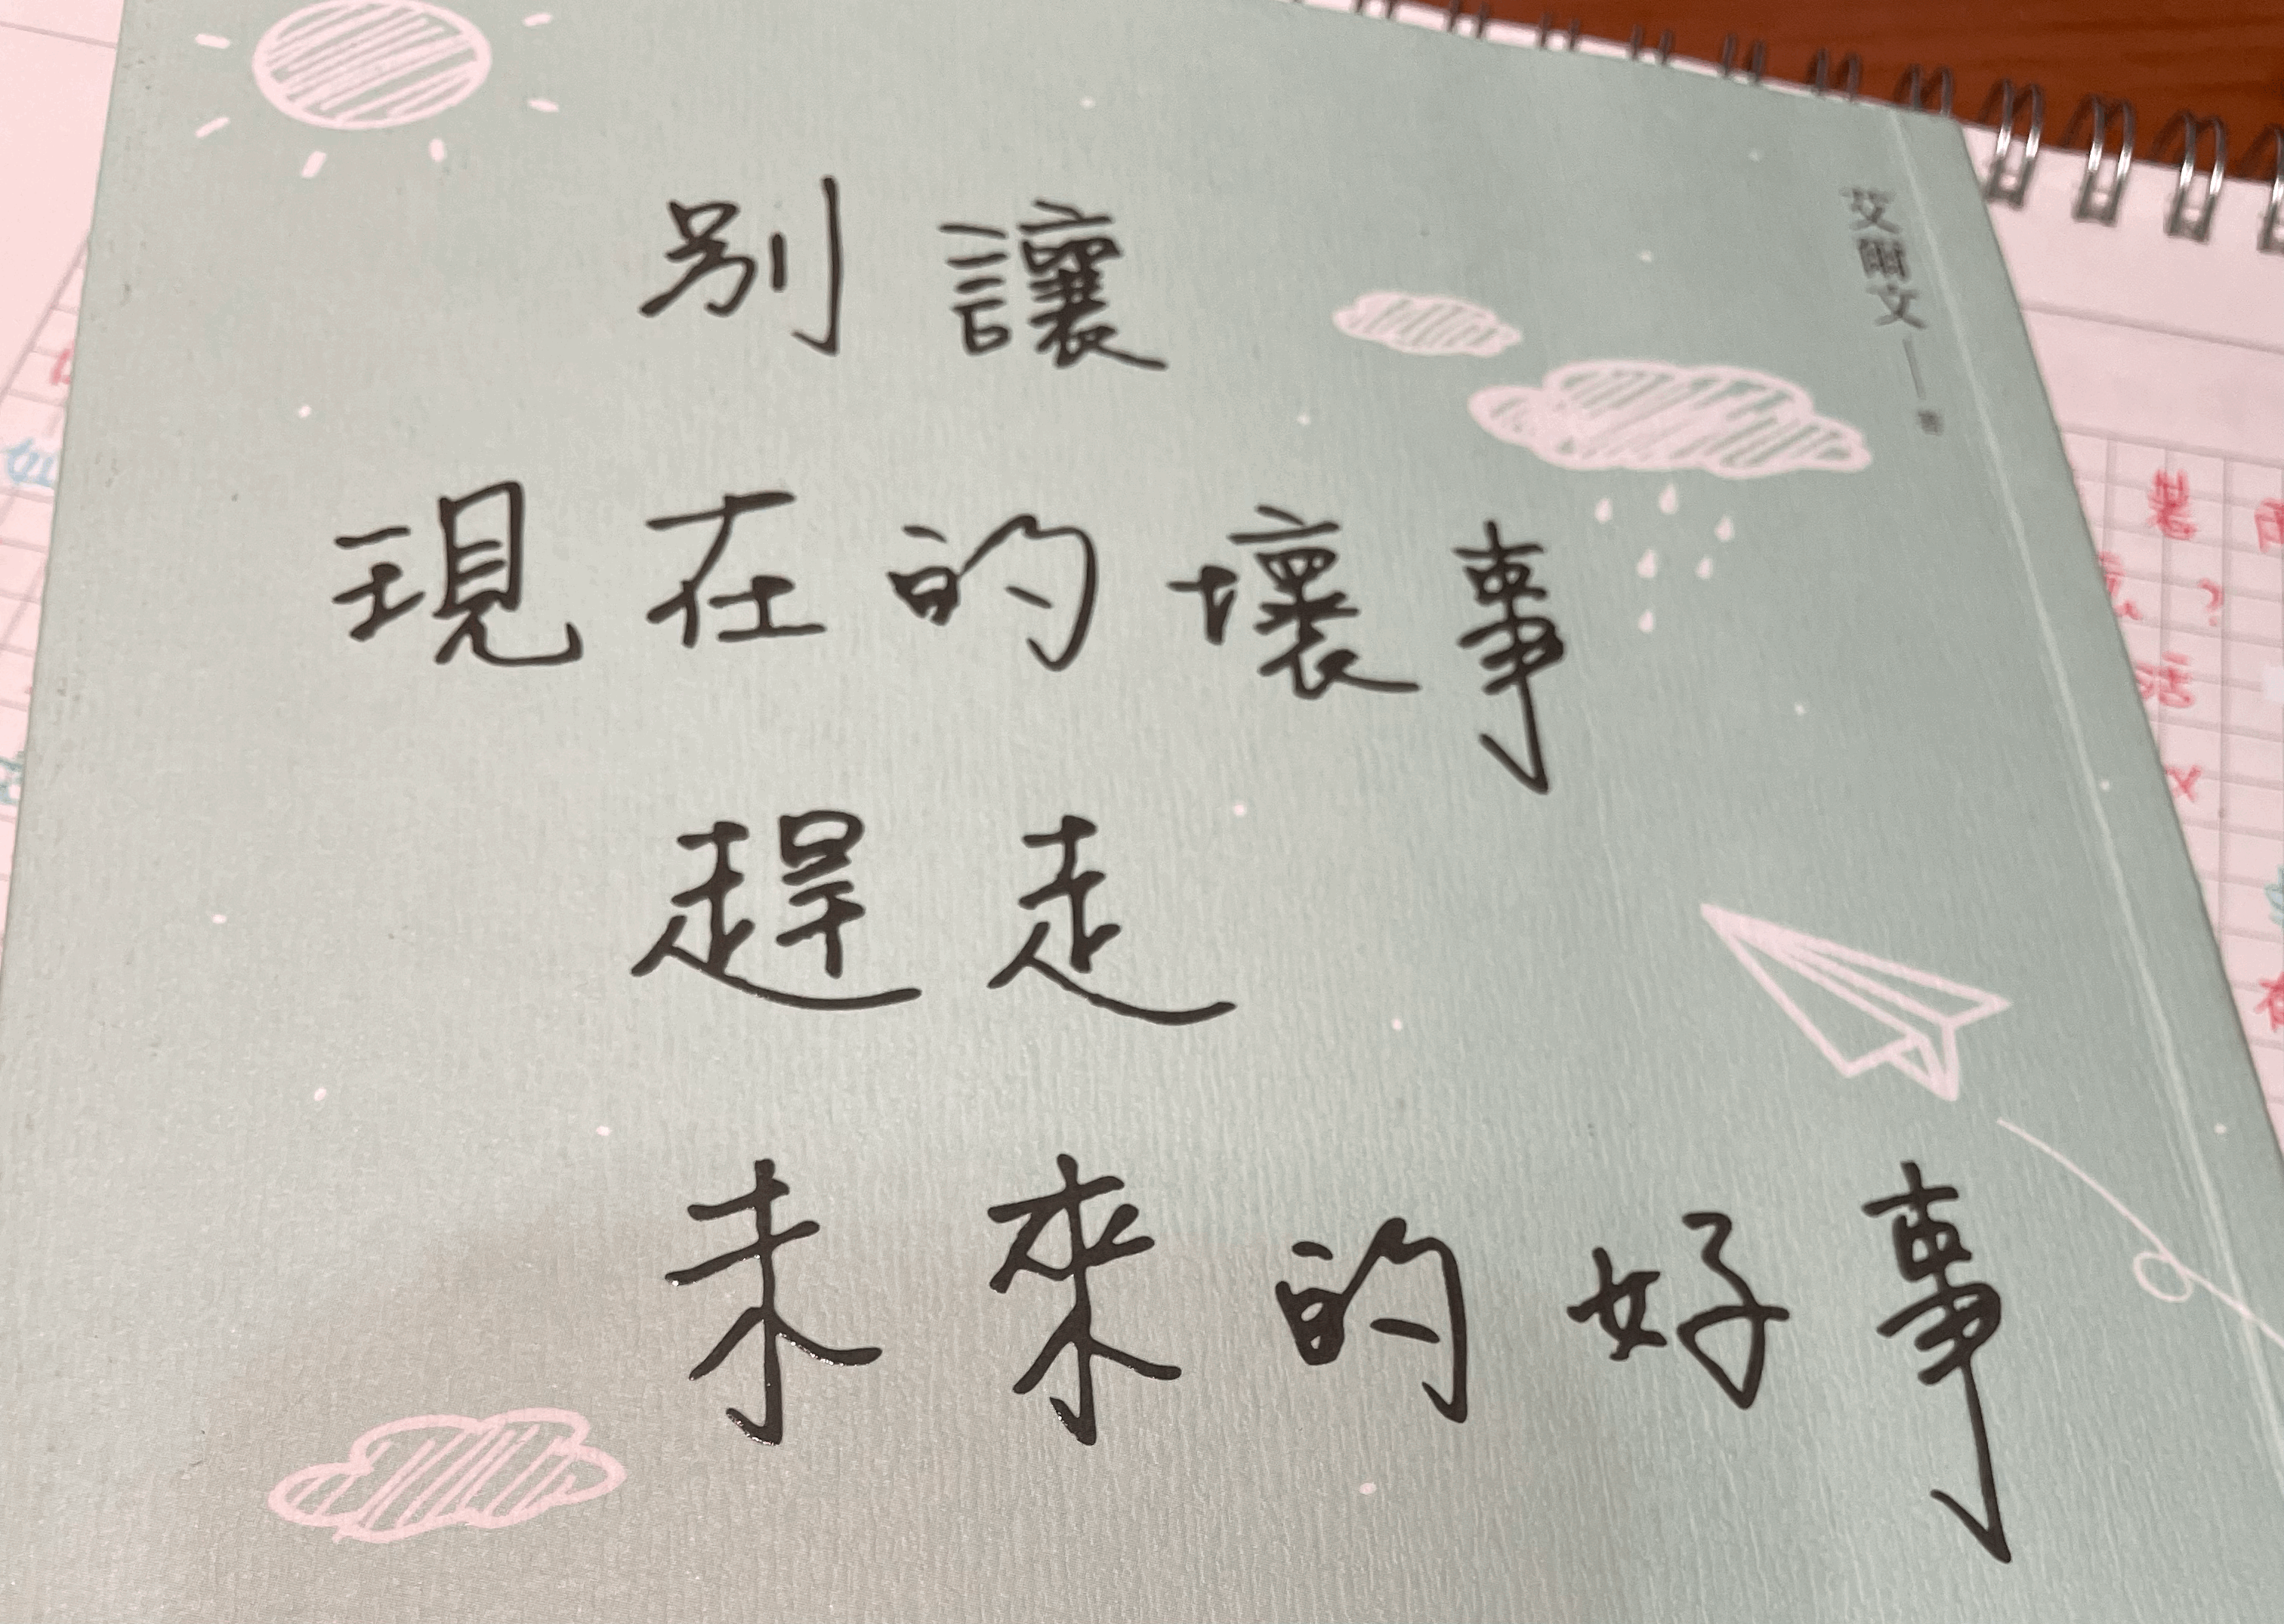 別讓
現在的壞事
趕走
未來的好事
艾爾文｜著